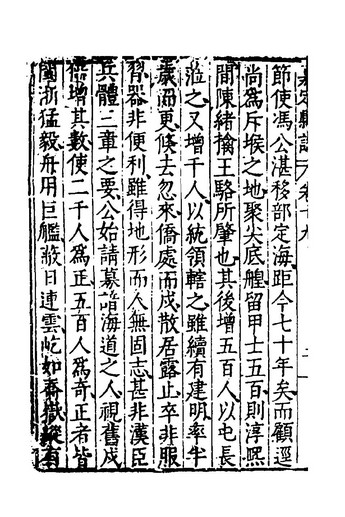 節使馮公湛移部定海距今七十年矣而顧逕
尚為斥堠之地聚尖底䑸留甲士五百則淳熈
間陳緒擒王駱所肇也其後增五百人以屯長
涖之又增千人以統領轄之雖續有建明率半
歲而更倏去忽來僑處而戍散居露止卒非服
習器非便利雖得地形而人無固志甚非漢臣
兵體三章之要公始請募諳海道之人視舊戍
增其數使二千人為正五百人為奇正者皆
閩浙猛毅舟用巨艦蔽日連雲屹如